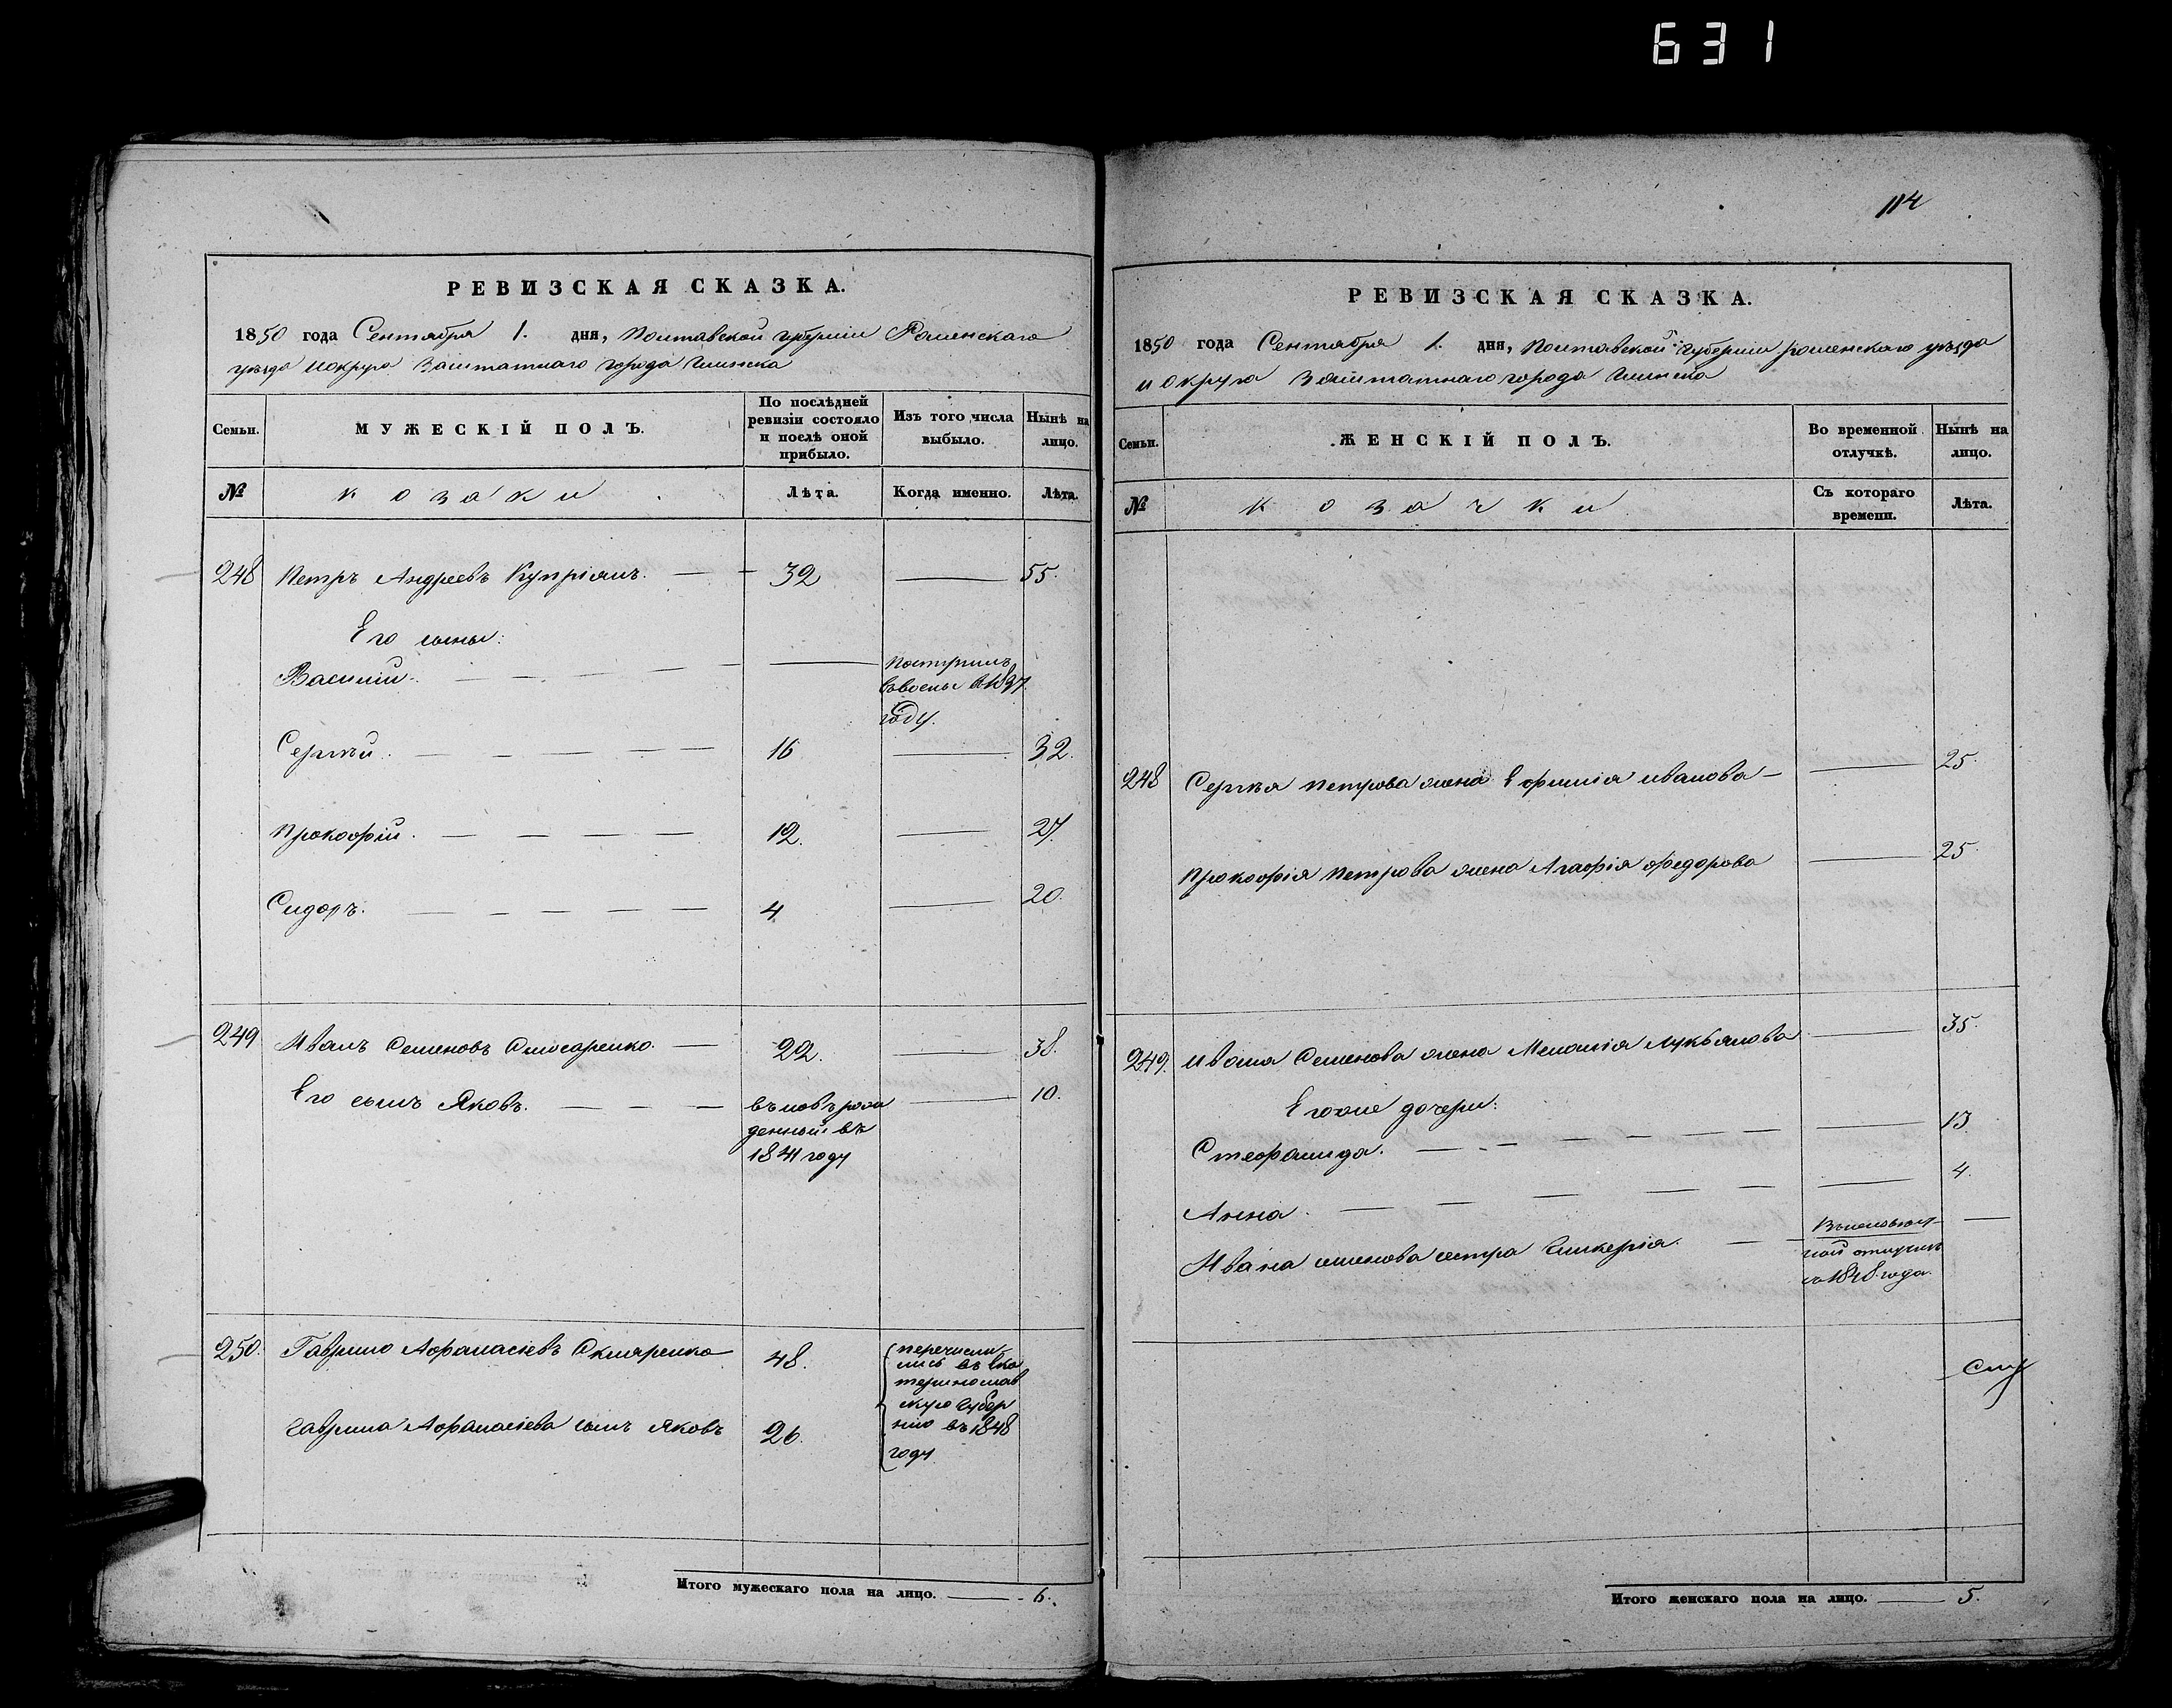 631
РЕВИЗСКАЯ СКАЗКА.
1850 года Сентября 1. дня, Полтавской губерніи Роменскаго
уезда и округа Заштатнаго города Глинска
Семьи.
МУЖЕСКІЙ ПОЛЪ.
По послѣдней ревизіи состояло и послѣ оной прибыло.
Изъ того числа выбыло.
Нынѣ на лицо.
№
козаки
Лѣта.
Когда именно.
Лѣта.
248 Петръ Андреевъ Купріянъ. 32 55.
Его сыны:
Василій. поступилъ
въ военъ в 1837
году.
Сергѣй. 16 32.
Прокофій. 12. 27.
Сидоръ. 4 20.
249 Иванъ Семеновъ Слюсаренко. 22. 38.
Его сынъ Яковъ. въ новъ рож 10.
денный въ
1841 году
250. Гаврило Афанасіевъ Скляренко 48. перечисли
лись въ Ека
теринослав
скую Губер
Гаврила Афанасіева сынъ Яковъ 26. нію въ 1848
году
Итого мужескаго пола на лицо. 6.
114
РЕВИЗСКАЯ СКАЗКА.
1850 года Сентября 1. дня, Полтавской Губерніи роменскаго уезда
и округа Заштатнаго города Глинска
Семьи.
ЖЕНСКІЙ ПОЛЪ.
Во временной отлучкѣ.
Нынѣ на лицо.
№
козачки
Съ котораго времени.
Лѣта.
248 Сергѣя Петрова жена Ефимія Иванова 25.
Прокофія Петрова жена Агафія Федорова 25
249. Ивана Семенова жена Меланія Лукьянова 35.
Его же дочери:
Стефанида. 13
Анна. 4.
Ивана Семенова сестра Гликерія.
ной отлучкѣ
съ 1848 года.
Итого женскаго пола на лицо. 5.